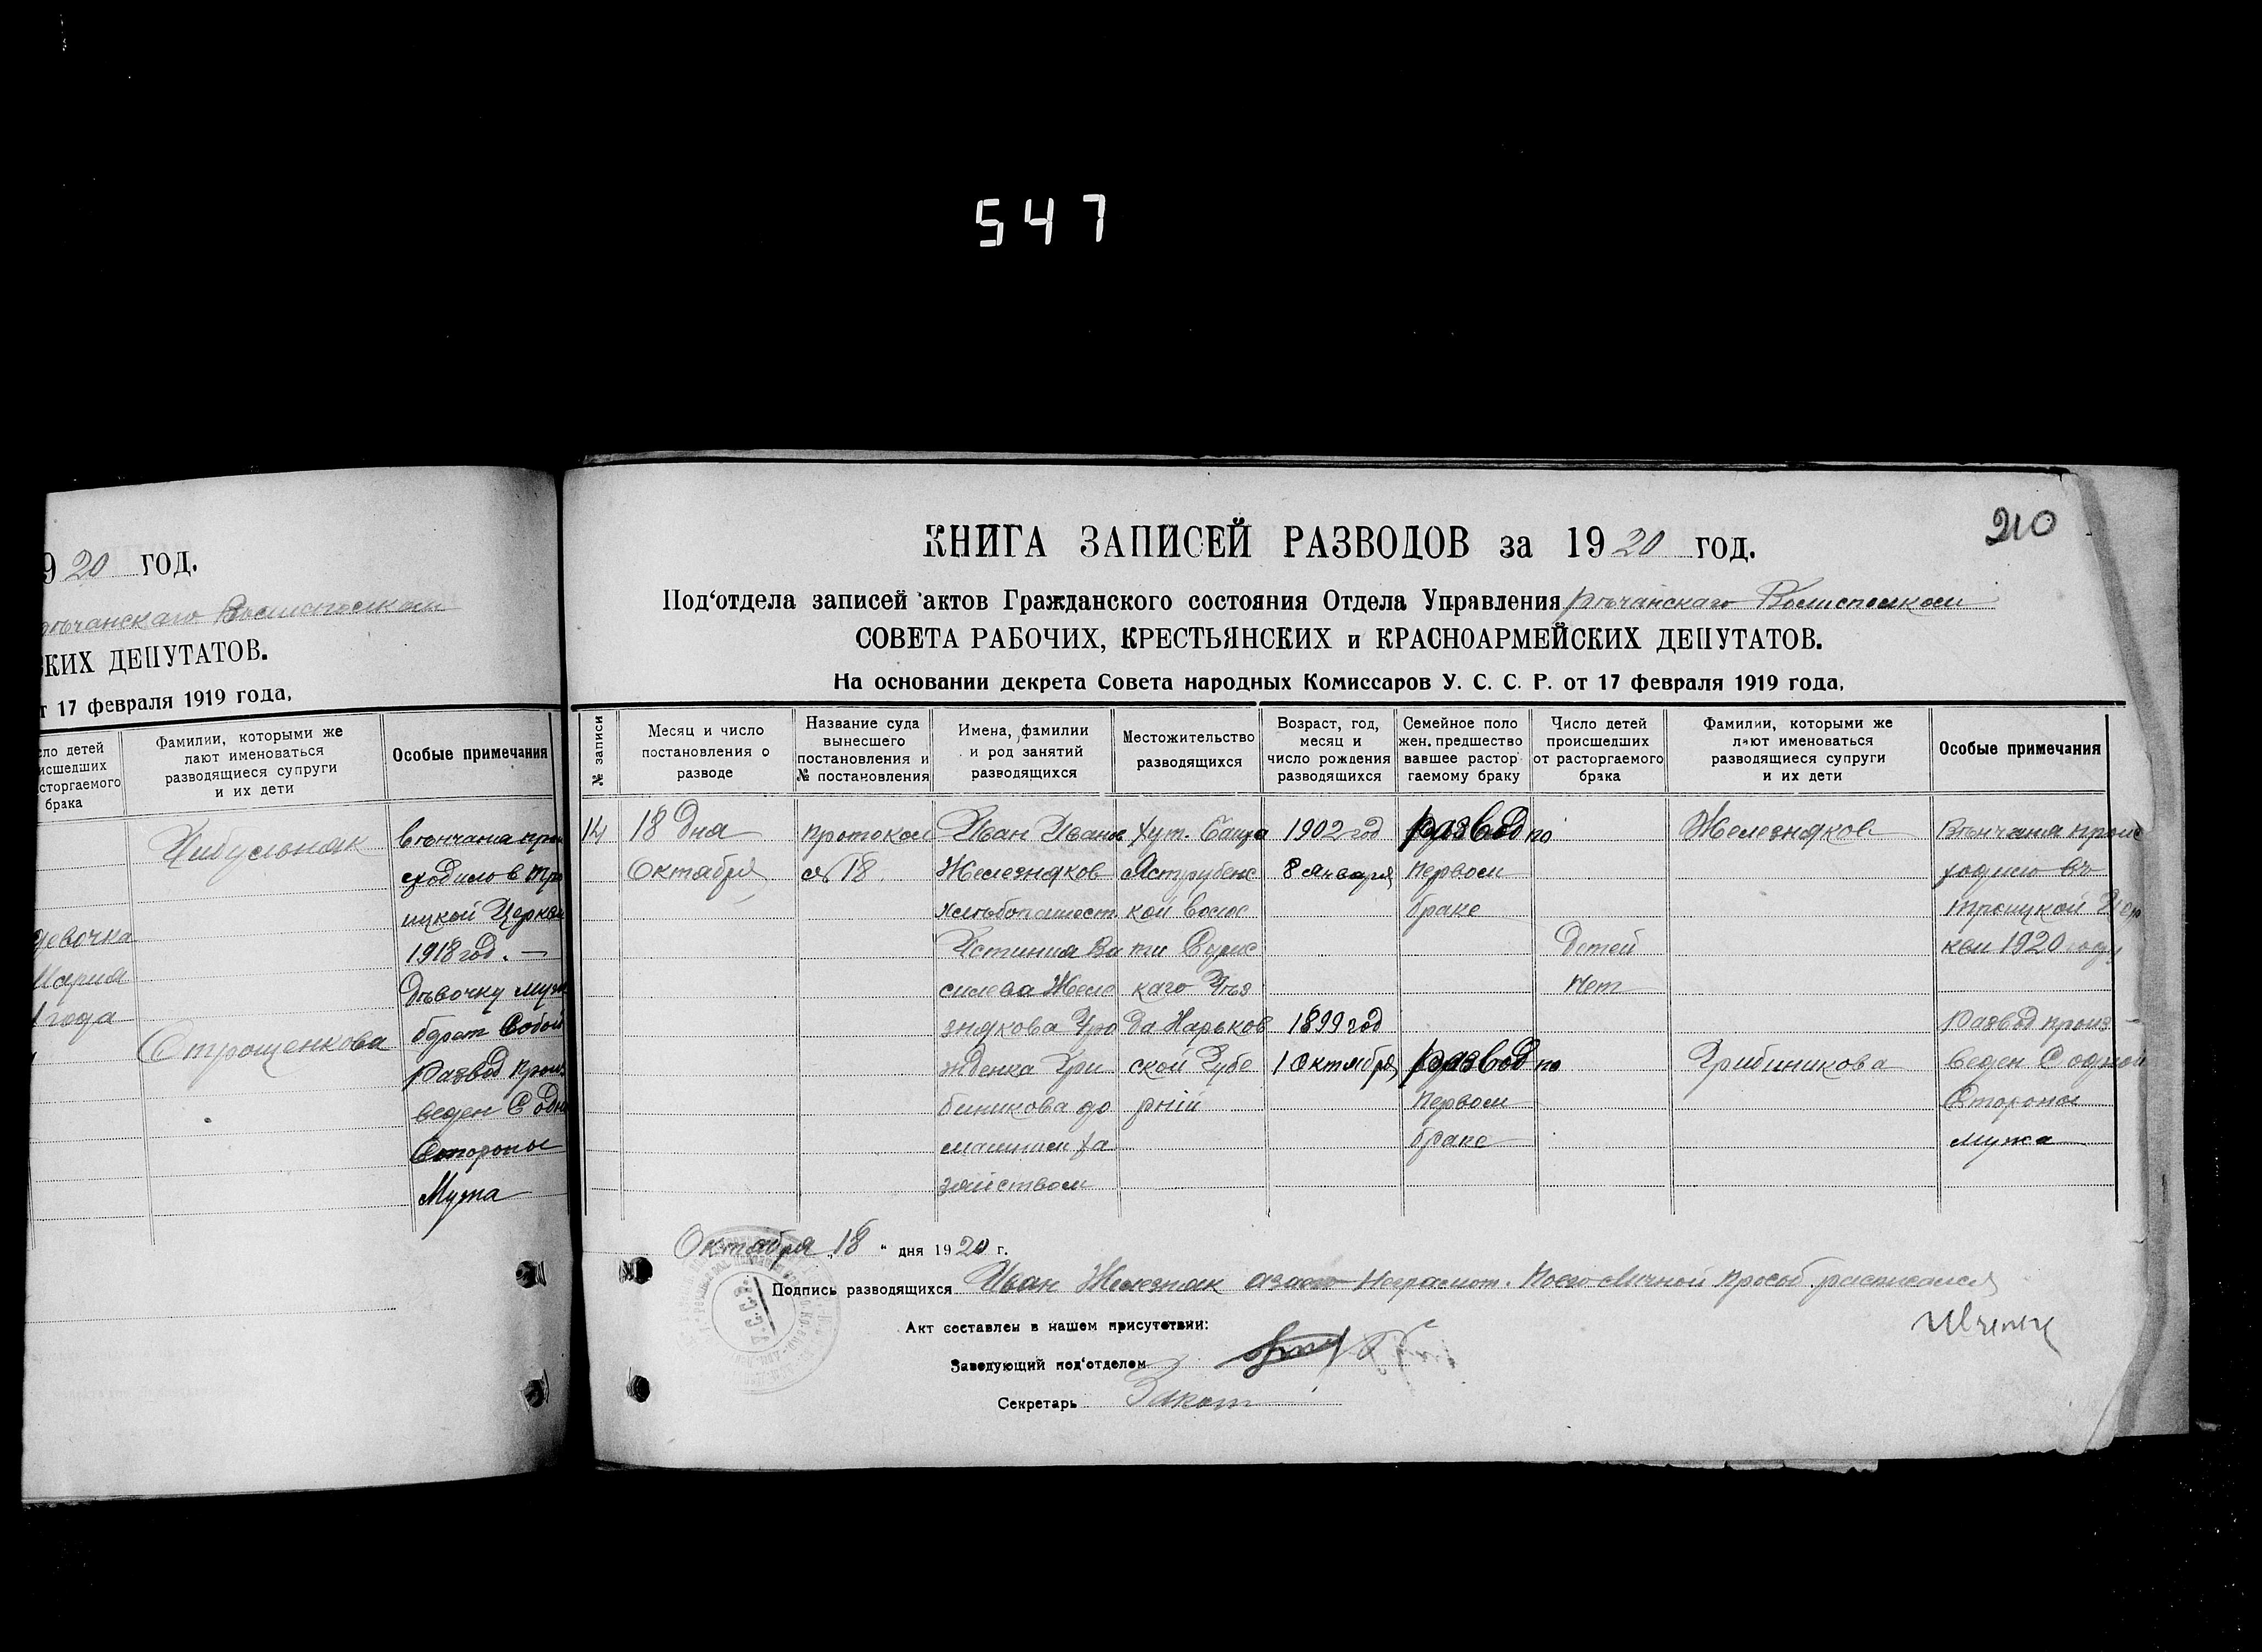 547
20 год.
КИХ ДЕПУТАТОВ.
17 февраля 1919 года,
сло детей
исшедших
сторгаемого
брака
Фамилии, которыми же
лают именоваться
разводящиеся супруги
и их дети
Особые примечания
девочка
Мария
1 года
Отрощенкова
венчания
сходило в Тро
ицкой Церкви
1918 год. —
Девочку муж
берет Собой
Развод произ
веден С одн
Стороны
Мужа
210
КНИГА ЗАПИСЕЙ РАЗВОДОВ за 1920 год.
Под'отдела записей актов Гражданского состояния Отдела Управления Речанскаго
СОВЕТА РАБОЧИХ, КРЕСТЬЯНСКИХ и КРАСНОАРМЕЙСКИХ ДЕПУТАТОВ.
На основании декрета Совета народных Комиссаров У. С. С. Р. от 17 февраля 1919 года,
№ записи
Месяц и число
постановления о
разводе
Название суда
вынесшего
постановления и
№ постановления
Имена, фамилии
и род занятий
разводящихся
Местожительство
разводящихся
Возраст, год,
месяц и
число рождения
разводящихся
Семейное поло
жен. предшество
вавшее растор
гаемому браку
Число детей
происшедших
от расторгаемого
брака
Фамилии, которыми же
лают именоваться
разводящиеся супруги
и их дети
Особые примечания
14
18 дня
Октября
протокол
№ 18
Иван Иванов
Железняков
хлебопашест
Устиния Ва
силева Желе
знякова Уро
жденка Гри
биникова до
машним ха
зяйством
хут.
Яструбенс
кой волос
ти Сумс
каго Уез
да Харьков
ской Губе
рніи
1902 год
8 Января
1899 год
1 Октября
развод по
первом
браке
развод по
первом
браке
Детей
Нет
Железняков
Грибиникова
Венчания проис
ходило въ
Троицкой Цер
кви 1920 году
Развод произ
веден С одной
Стороны
мужа
Октября „18 " дня 1920 г.
Подпись разводящихся Иван Железняк неграмот. личной просьб расписался
Акт составлен в нашем присутствии:
Заведующий под'отделом
Секретарь